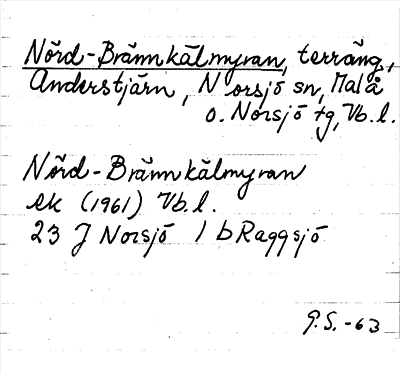 Nörd-Brännkälmyran, terräng,
Anderstjärn, Norsjö sn, Malå
o. Norsjö tg, Vb.l.
Nörd-Brännkälmyran
ek (1961) Vb.l.
23 J Norsjö 1 b Raggsjö
G.S. -63